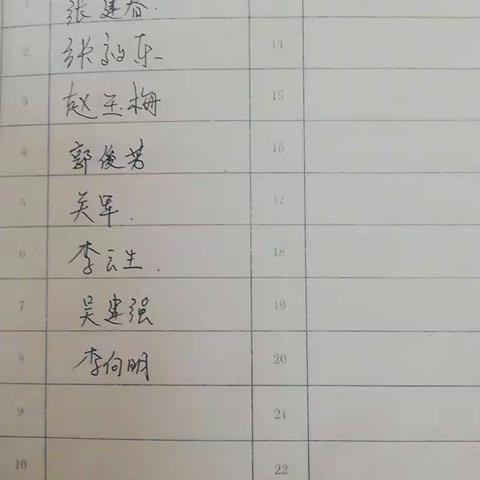 1 张建春.
2 张毅东 14
3 赵玉梅 15
4 郭俊芳 16
5 关军. 17
6 李云生. 18
7 吴建强 19
8 李向明 20
9 21
10 22